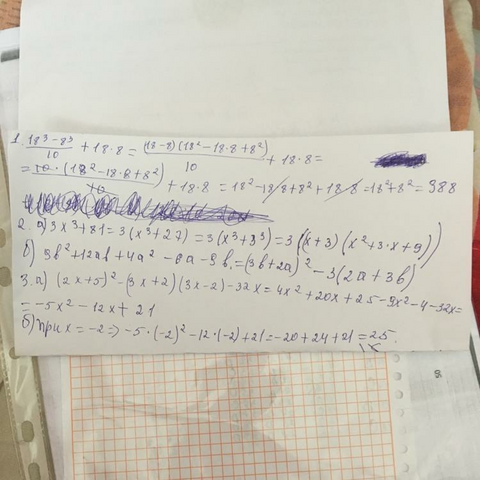 1. (18³-8³)/10 + 18·8 = (18-8)(18²-18·8+8²)/10 + 18·8 =
= 10·(18²-18·8+8²)/10 + 18·8 = 18²-18·8+8²+18·8 = 18²+8² = 388
2. а) 3x³+81 = 3(x³+27) = 3(x³+3³) = 3((x+3)(x²+3·x+9))
б) 9b²+12ab+4a²-6a-9b = (3b+2a)²-3(2a+3b)
3. а) (2x+5)²-(3x+2)(3x-2)-32x = 4x²+20x+25-9x²-4-32x =
= -5x²-12x+21
б) при x=-2 ⇒ -5·(-2)²-12·(-2)+21 = -20+24+21 = 25.